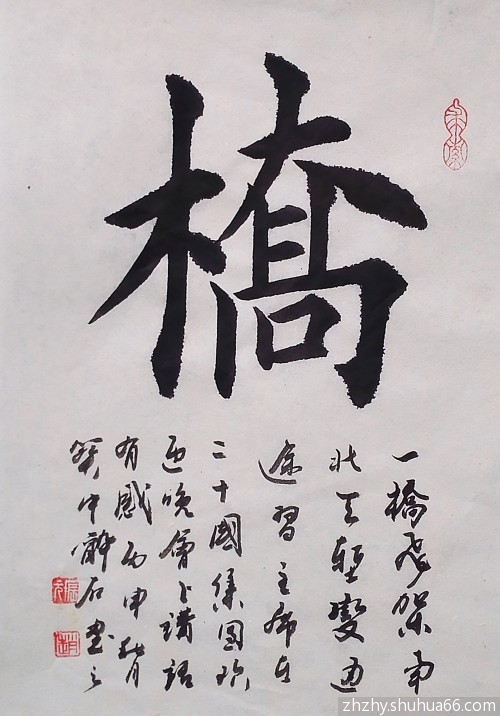 橋
一橋飛架南
北天塹變通
途習主席在
二十國集团歡
迎晚會上講話
有感丙申秋月
中石書之
zhzhy.shuhua66.com